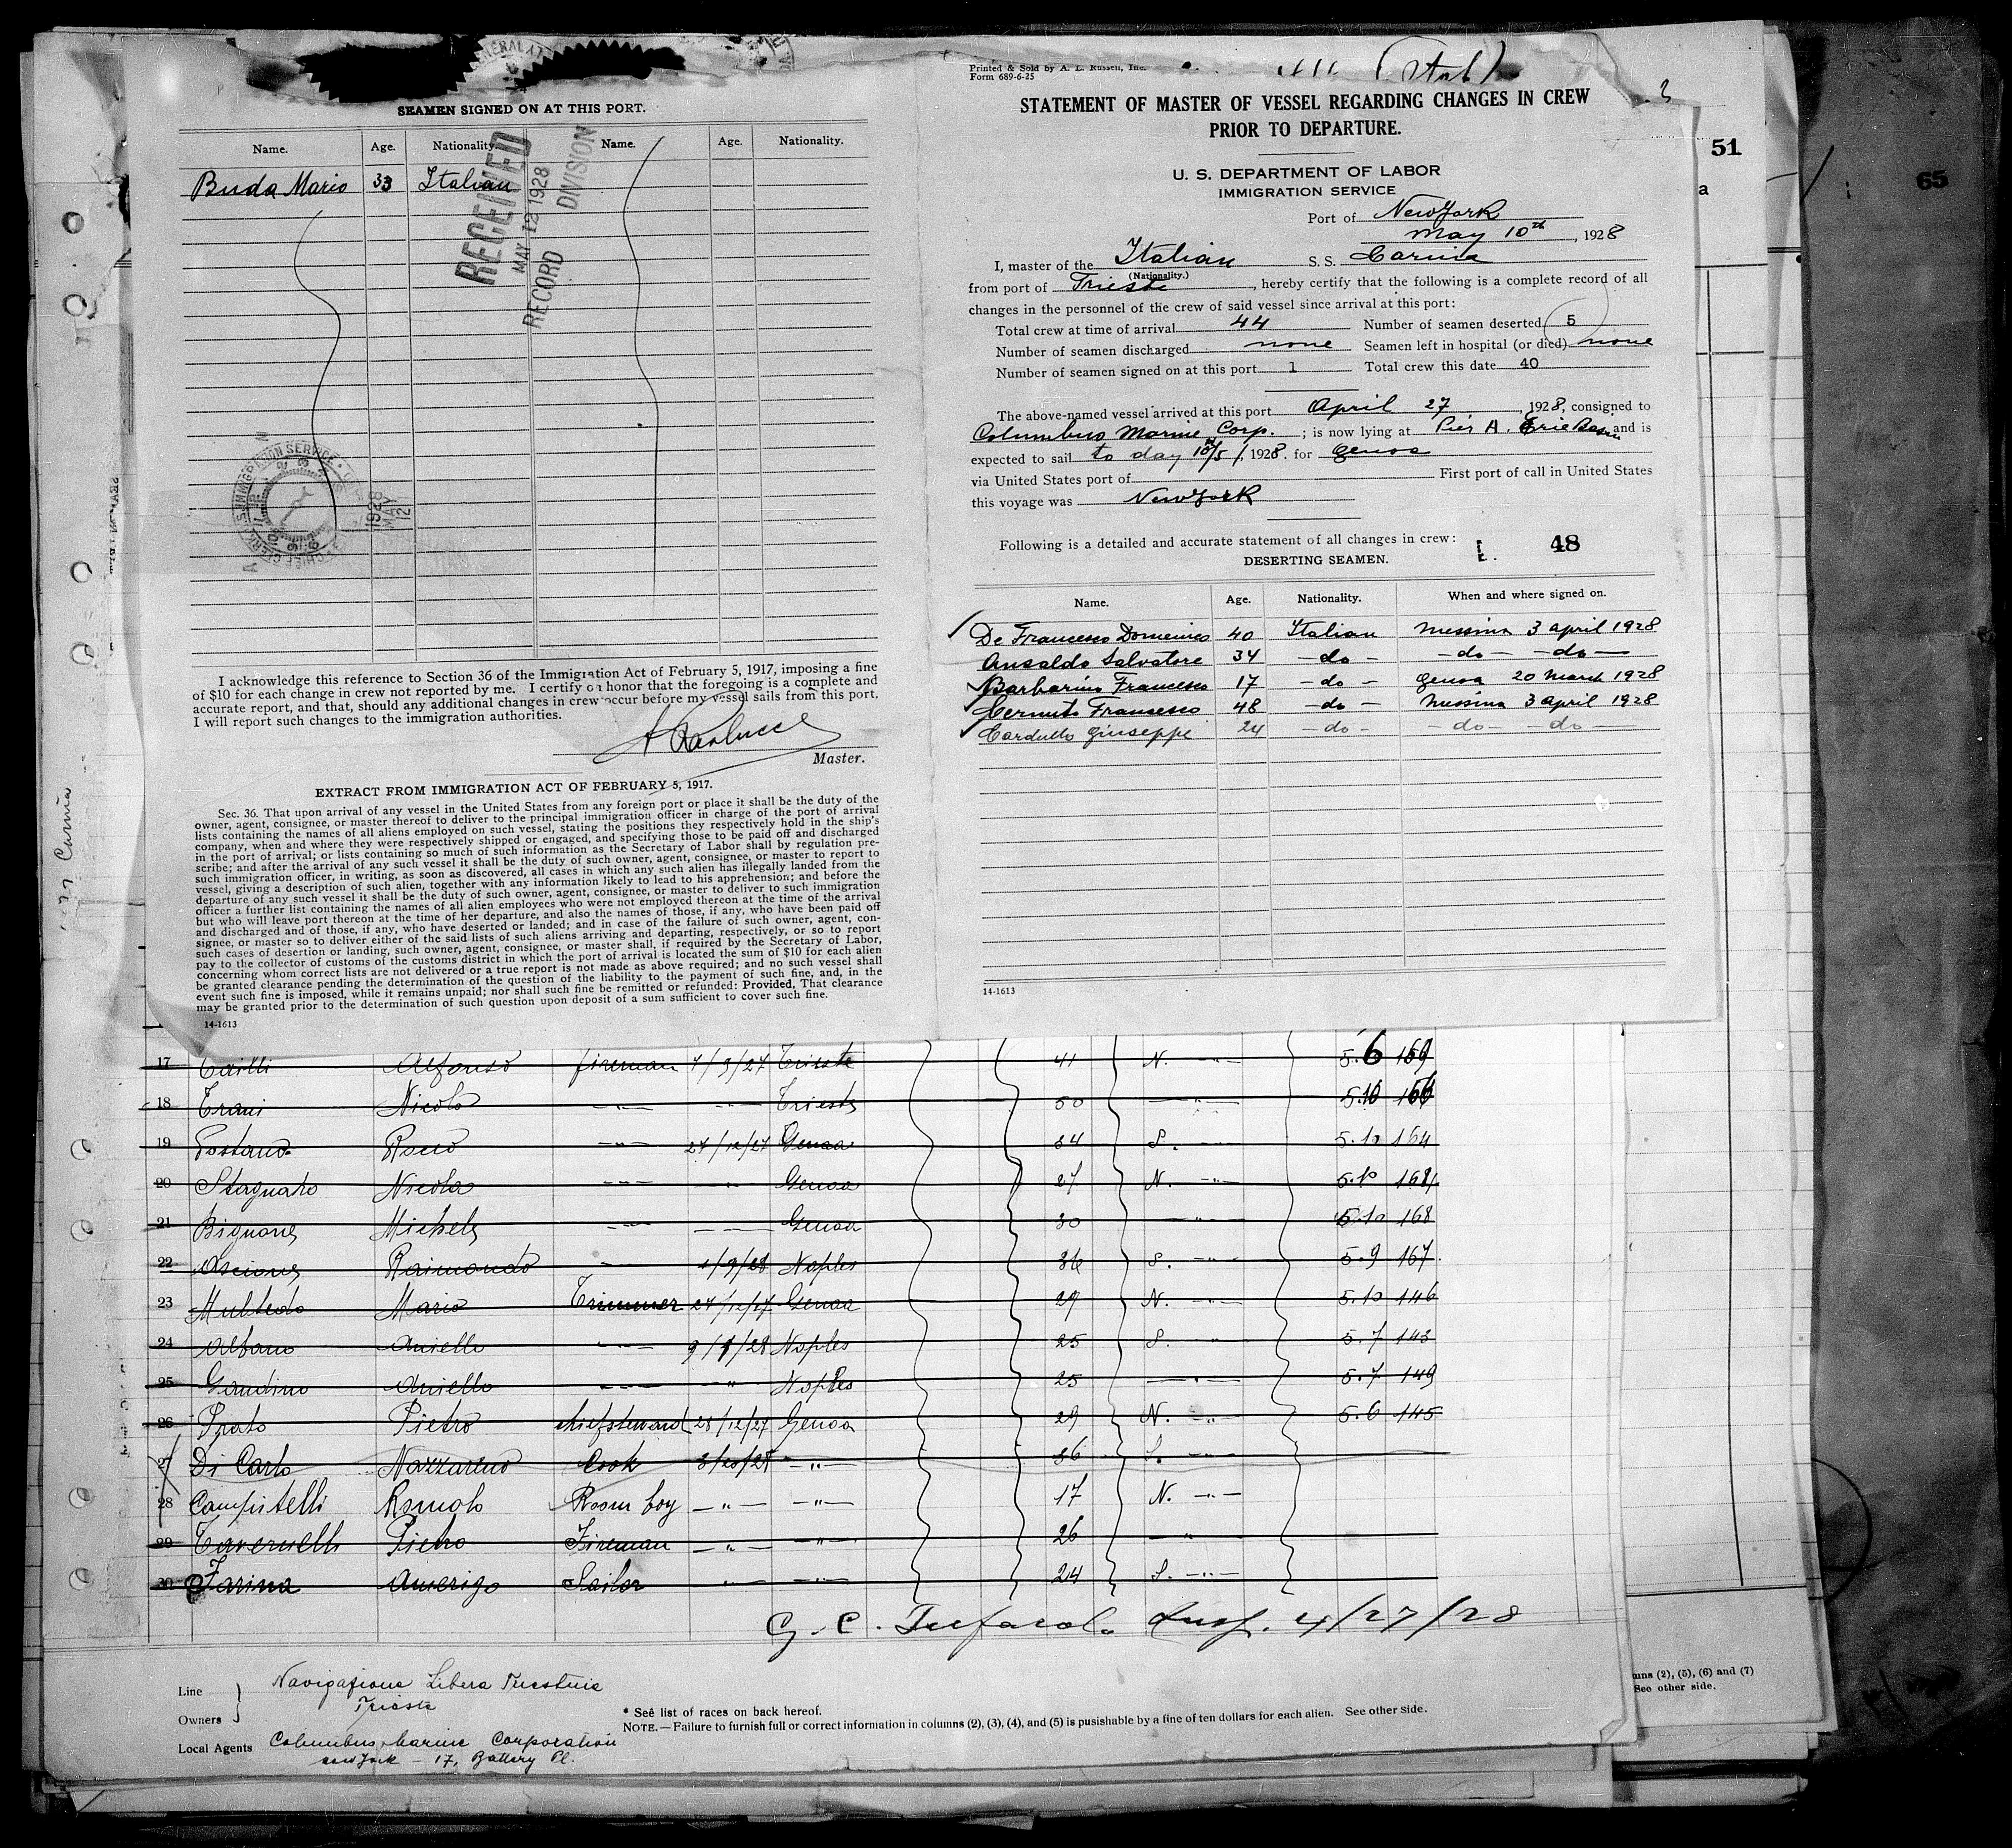 SEAMEN SIGNED ON AT THIS PORT.
Name. Age. Nationality. Name. Age. Nationality.
Buda Mario 33 Italian
RECEIVED
MAY 12 1928
RECORD DIVISION
1928
MAY
12
I acknowledge this reference to Section 36 of the Immigration Act of February 5, 1917, imposing a fine
of $10 for each change in crew not reported by me. I certify on honor that the foregoing is a complete and
accurate report, and that, should any additional changes in crew occur before my vessel sails from this port,
I will report such changes to the immigration authorities.
Master.
EXTRACT FROM IMMIGRATION ACT OF FEBRUARY 5, 1917.
Sec. 36. That upon arrival of any vessel in the United States from any foreign port or place it shall be the duty of the
owner, agent, consignee, or master thereof to deliver to the principal immigration officer in charge of the port of arrival
lists containing the names of all aliens employed on such vessel, stating the positions they respectively hold in the ship's
company, when and where they were respectively shipped or engaged, and specifying those to be paid off and discharged
in the port of arrival; or lists containing so much of such information as the Secretary of Labor shall by regulation pre-
scribe; and after the arrival of any such vessel it shall be the duty of such owner, agent, consignee, or master to report to
such immigration officer, in writing, as soon as discovered, all cases in which any such alien has illegally landed from the
vessel, giving a description of such alien, together with any information likely to lead to his apprehension; and before the
departure of any such vessel it shall be the duty of such owner, agent, consignee, or master to deliver to such immigration
officer a further list containing the names of all alien employees who were not employed thereon at the time of the arrival
but who will leave port thereon at the time of her departure, and also the names of those, if any, who have been paid off
and discharged and of those, if any, who have deserted or landed; and in case of the failure of such owner, agent, con-
signee, or master so to deliver either of the said lists of such aliens arriving and departing, respectively, or so to report
such cases of desertion or landing, such owner, agent, consignee, or master shall, if required by the Secretary of Labor,
pay to the collector of customs of the customs district in which the port of arrival is located the sum of $10 for each alien
concerning whom correct lists are not delivered or a true report is not made as above required; and no such vessel shall
be granted clearance pending the determination of the question of the liability to the payment of such fine, and, in the
event such fine is imposed, while it remains unpaid; nor shall such fine be remitted or refunded: Provided, That clearance
may be granted prior to the determination of such question upon deposit of a sum sufficient to cover such fine.
14-1613
Printed & Sold by A. L. Russell, Inc.
Form 689-6-25
STATEMENT OF MASTER OF VESSEL REGARDING CHANGES IN CREW
PRIOR TO DEPARTURE.
U. S. DEPARTMENT OF LABOR
IMMIGRATION SERVICE
Port of New York
May 10th, 1928
I, master of the Italian S. S. Carnia
(Nationality.)
from port of Trieste, hereby certify that the following is a complete record of all
changes in the personnel of the crew of said vessel since arrival at this port:
Total crew at time of arrival 44 Number of seamen deserted 5
Number of seamen discharged none Seamen left in hospital (or died) none
Number of seamen signed on at this port 1 Total crew this date 40
The above-named vessel arrived at this port April 27, 1928, consigned to
Columbus Marine Corp.; is now lying at Pier A. Erie Basin and is
expected to sail to day 10/5/, 1928. for Genoa
via United States port of First port of call in United States
this voyage was New York
Following is a detailed and accurate statement of all changes in crew:
48
DESERTING SEAMEN.
Name. Age. Nationality. When and where signed on.
De Francesco Domenico 40 Italian Messina 3 april 1928
Ansaldo Salvatore 34 -do- -do- -do-
Barbarino Francesco 17 -do- Genoa 20 March 1928
Cernuto Francesco 48 -do- Messina 3 april 1928
Cardullo Giuseppe 24 -do- -do- -do-
14-1613
51
65
17 Alfonso fireman Trieste 41 N. 5.6
18 Nicolo Trieste 50 5.10
19 24/12/27 Genoa 34 S. 5.10 164
20 Stagnaro Nicola Genoa 27 N. 5.10 168
21 Bignone Michele Genoa 30 5.10 168
22 Ascione Raimondo Naples 36 S. 5.9 167
23 Multedo Mario Trimmer 24/12/27 Genoa 29 N. 5.10 146
24 Alfano Aniello Naples 25 S. 5.7 143
25 Gaudino Aniello Naples 25 5.7 149
26 Prato Pietro chief steward Genoa 29 N. 5.6 145
27 Di Carlo Nazzareno Cook 36 S.
28 Campitelli Romolo Room boy 17 N.
29 Pietro Fireman 26
30 Farina Amerigo Sailor 24 S.
4/27/28
Line Navigazione Libera Triestina
Owners Trieste
Local Agents Columbus Marine Corporation
New York - 17, Battery Pl.
* See list of races on back hereof.
NOTE.—Failure to furnish full or correct information in columns (2), (3), (4), and (5) is punishable by a fine of ten dollars for each alien. See other side.
mns (2), (5), (6) and (7)
See other side.